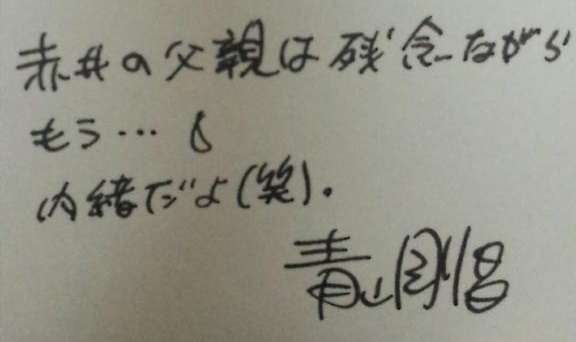 赤井の父親は残念ながら
もう…💧
内緒だよ(笑)。
青山剛昌